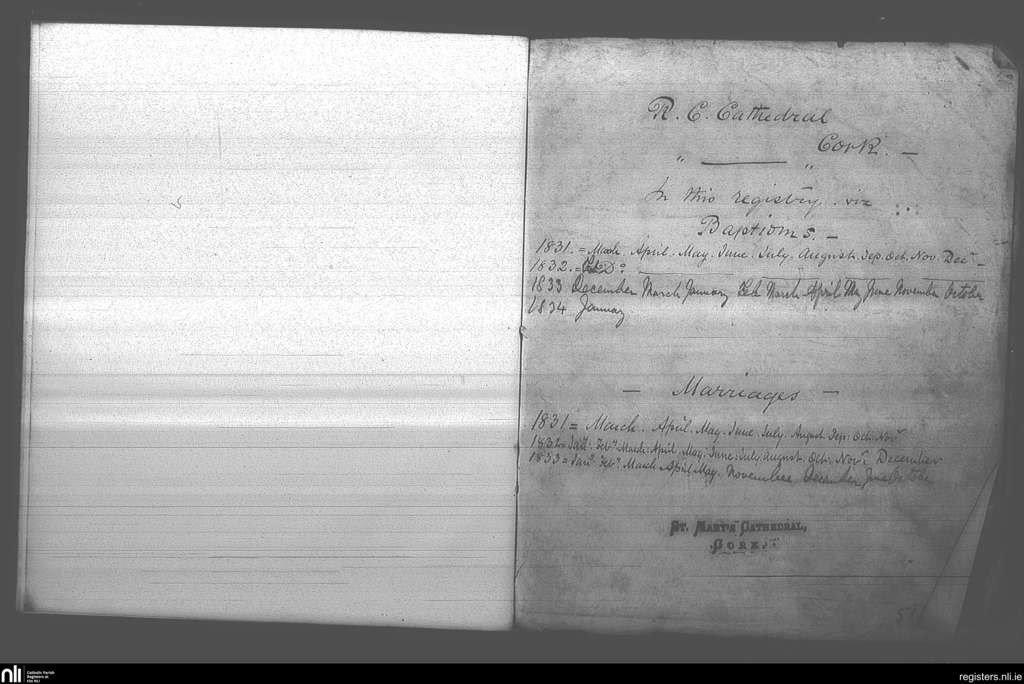 R. C. Cathedral
Cork. —
" ——— "
In this registry. viz
Baptisms. —
1831. = March. April. May. June. July. August. Sep. Oct. Nov. Decr. —
1832. = Do.
1833 December March January Feb March April May June November October
1834 January
— Marriages —
1831 = March. April. May. June. July. August. Sep. Oct. Novr
1832 = Jany. Feby. March. April. May. June. July. August. Oct. Novr. December
1833 = Jany. Feby. March April May. November December June October
ST. MARY'S CATHEDRAL,
CORK.
nli
Catholic Parish
Registers at
the NLI
registers.nli.ie